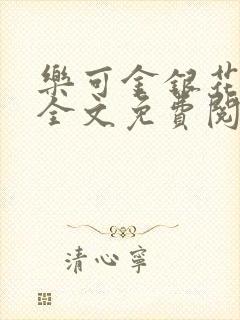 樂可金銀花
全文免費閱
清心寧